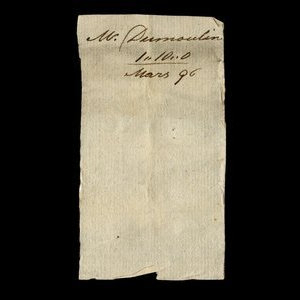 Mr. Dumoulin
1 „ 10 „ 0
Mars 96